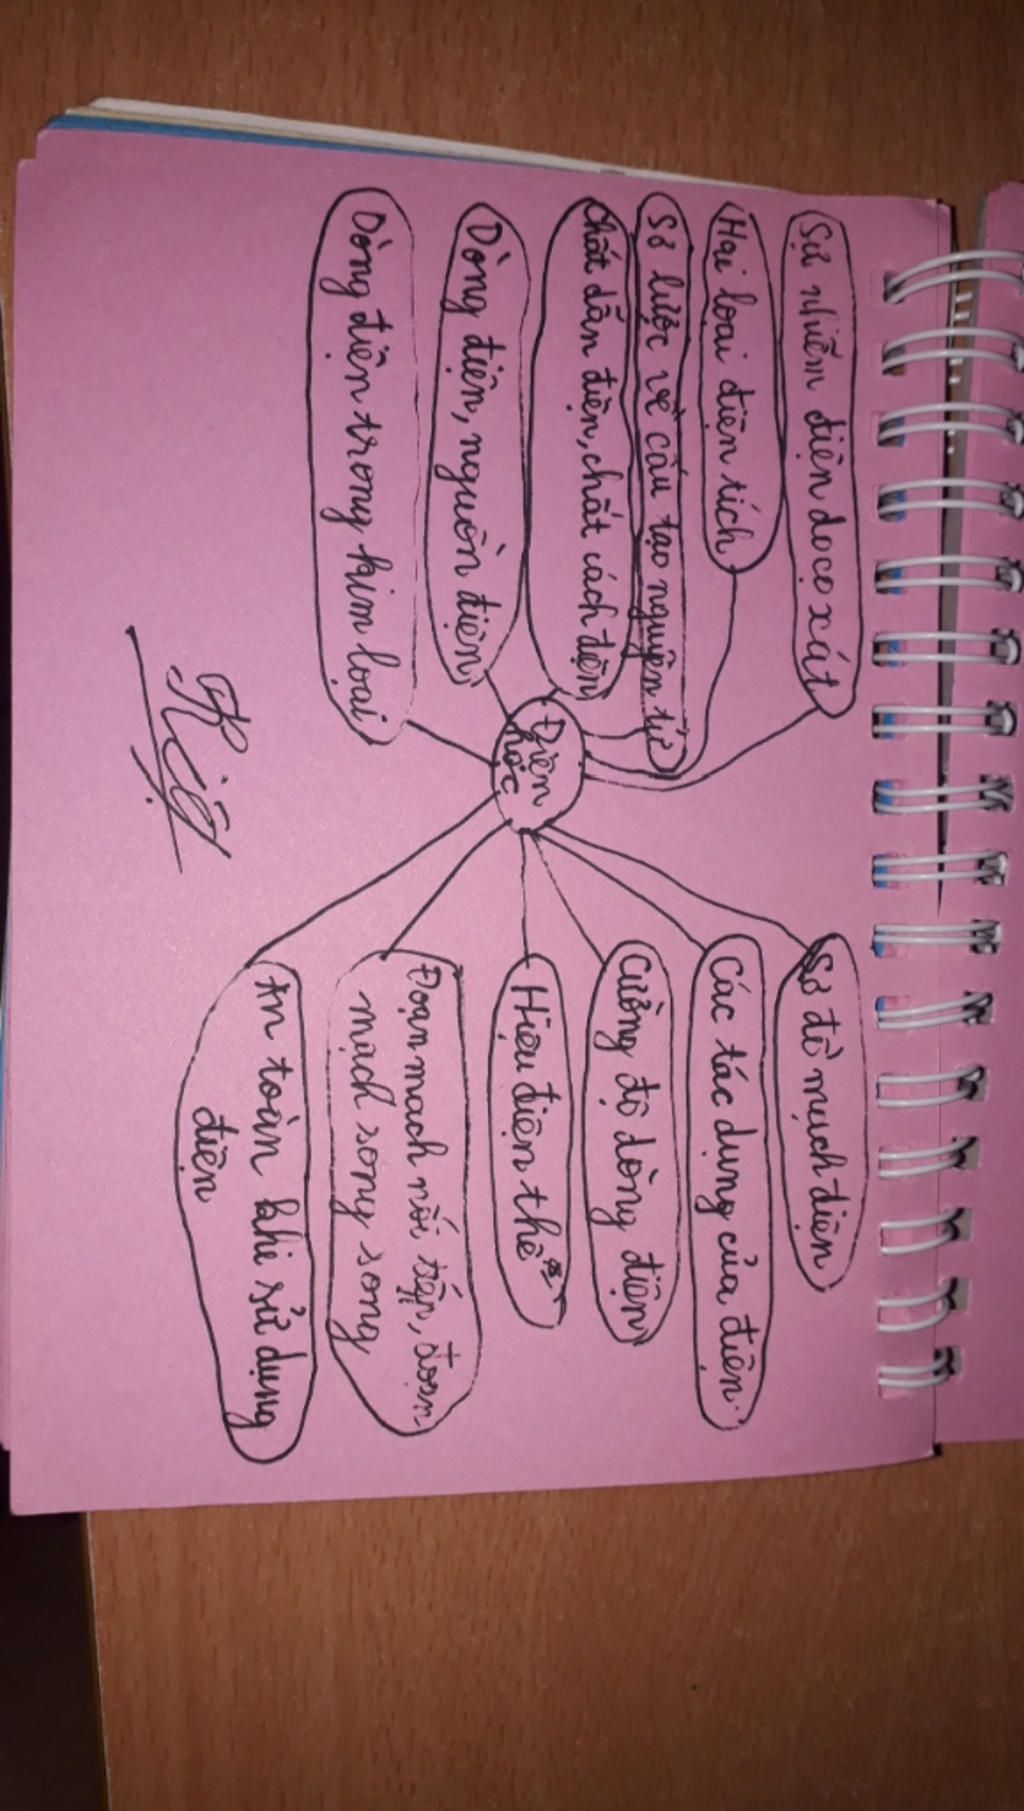 Sự nhiễm điện do cọ xát
Hai loại điện tích
Sơ lược về cấu tạo nguyên tử
Chất dẫn điện, chất cách điện
Dòng điện, nguồn điện
Dòng điện trong kim loại
Điện
học
Sơ đồ mạch điện
Các tác dụng của điện.
Cường độ dòng điện
Hiệu điện thế
Đoạn mach nối tiếp, đoạn
mạch song song
An toàn khi sử dụng
điện